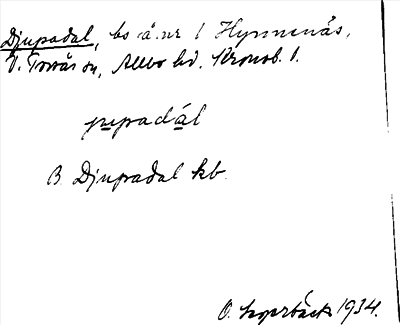 Djupadal, bs å.nr 1 Hymmenäs,
V. Torsås sn, Allbo hd, Kronob. l.
jupadál
B. Djupadal kb.
O. 1934.